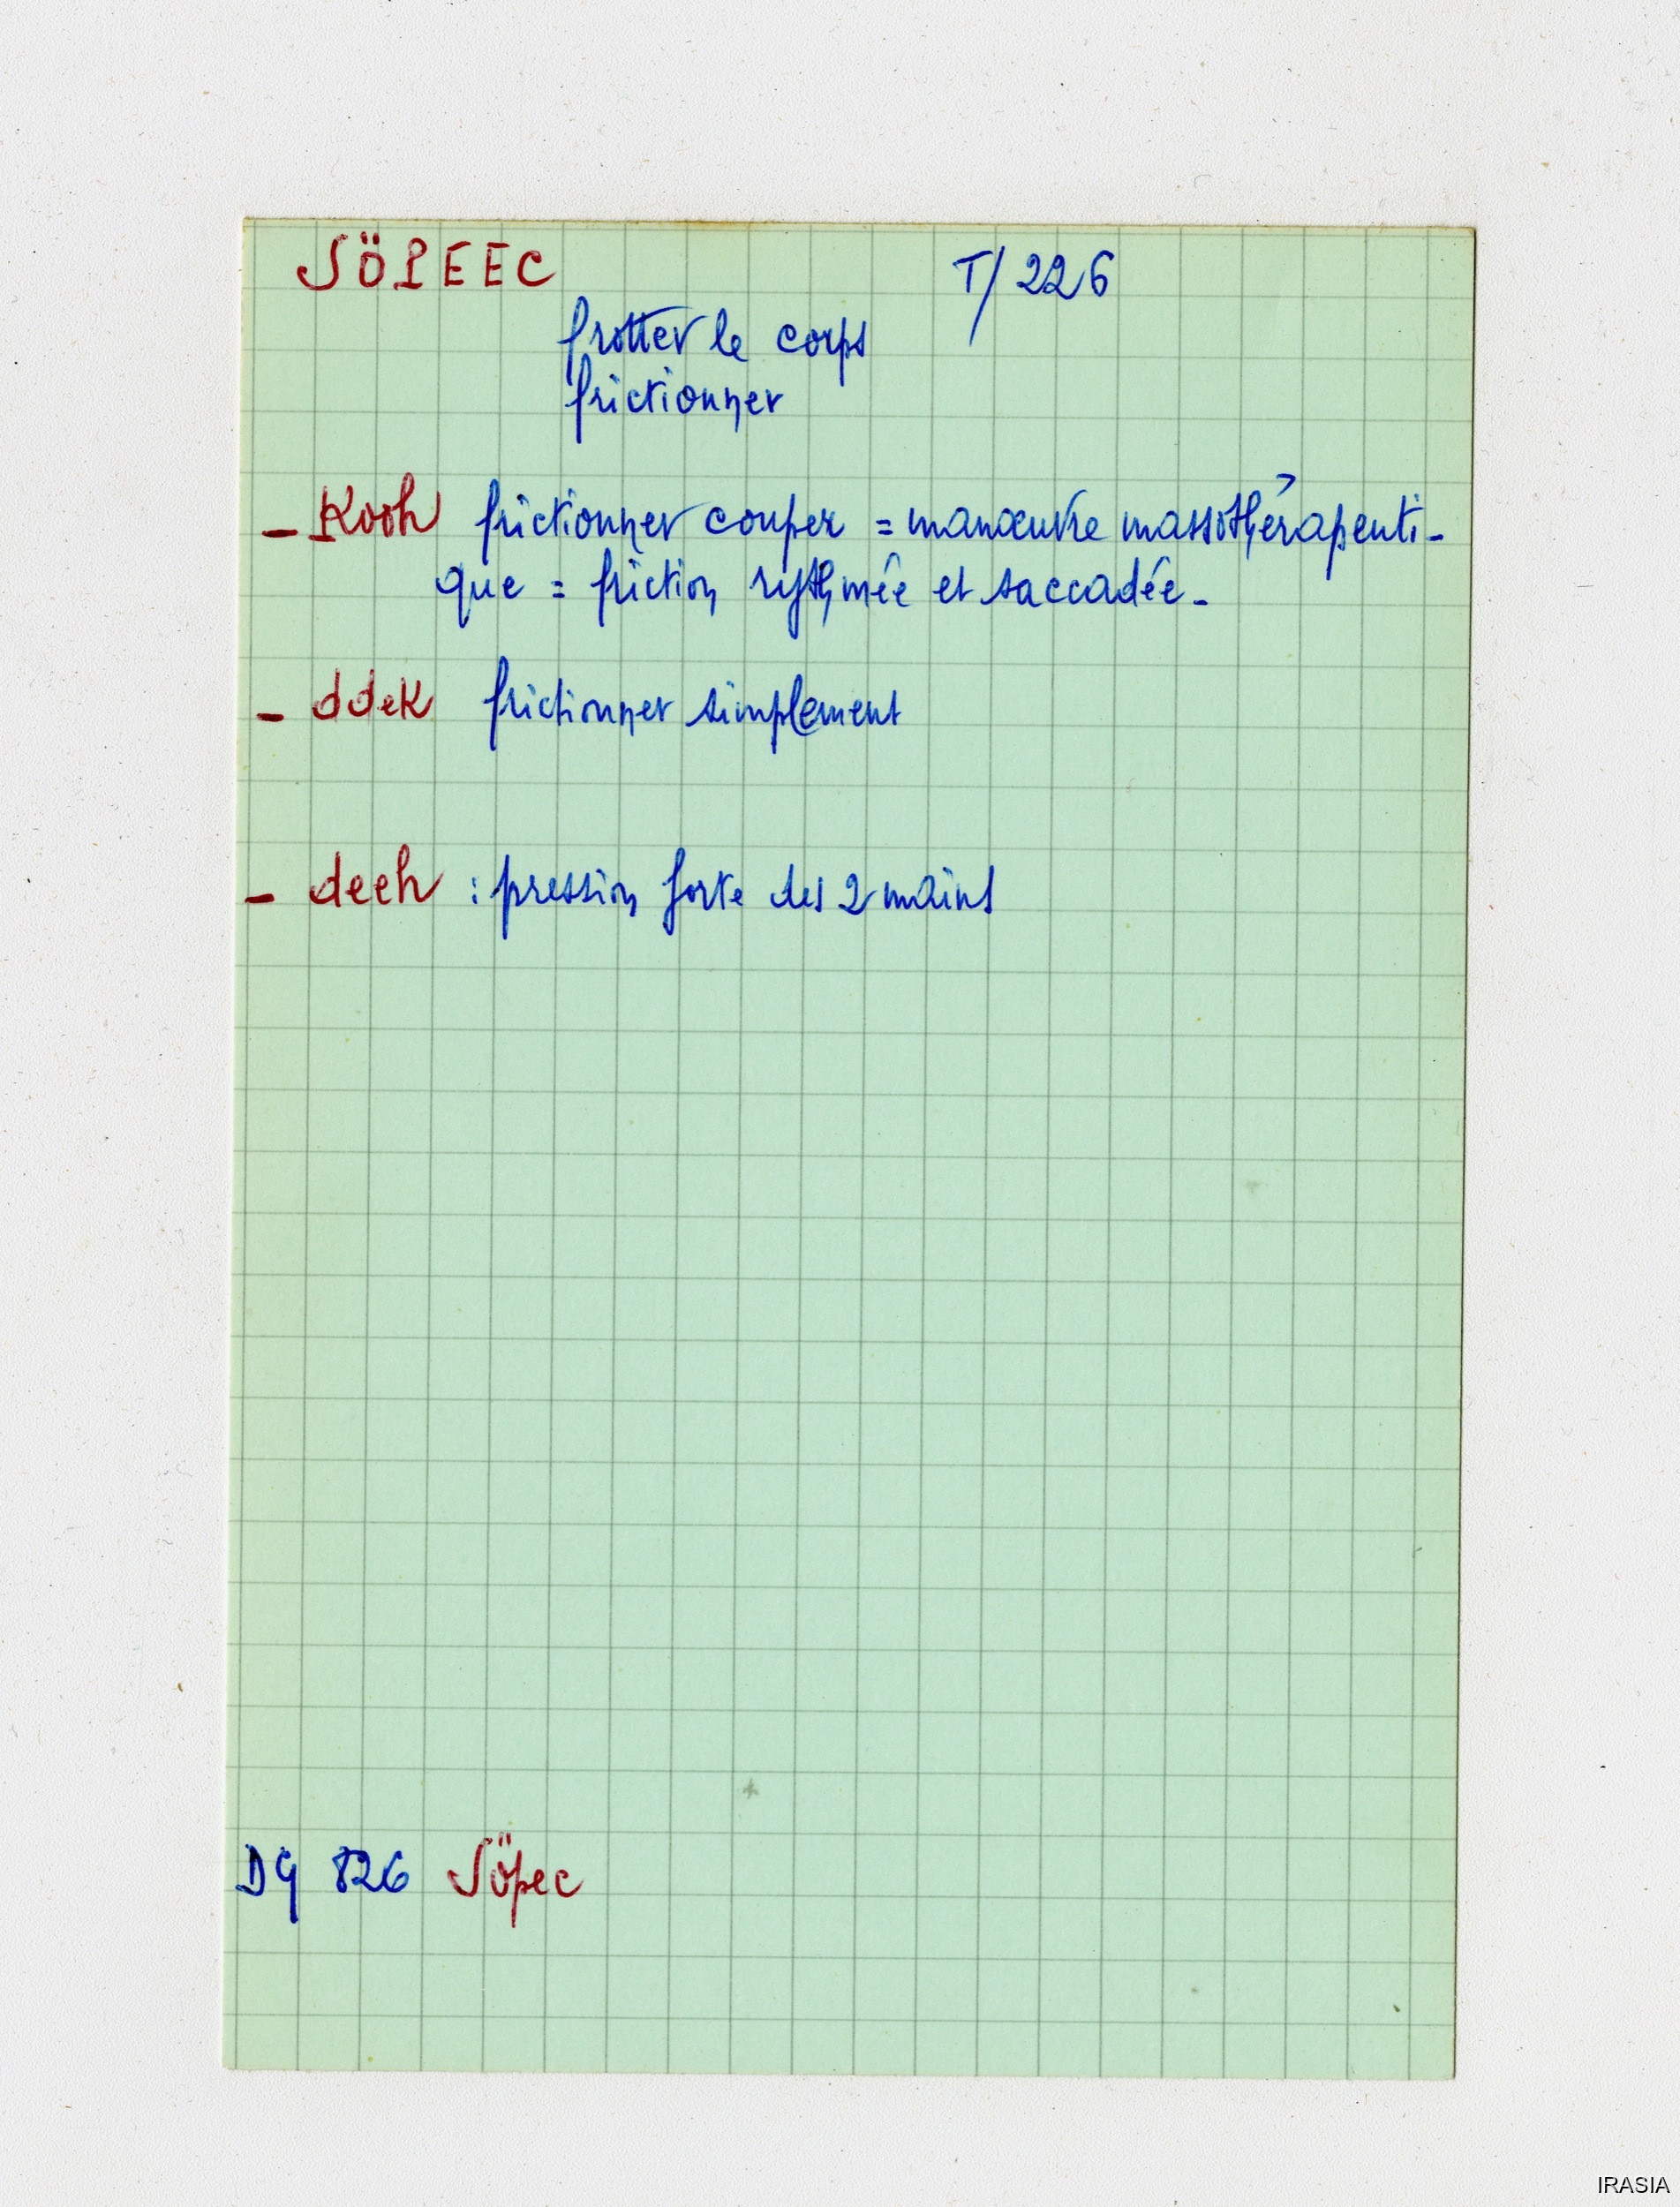 SÖPEEC T/226
frotter le corps
frictionner
- Kooh frictionner couper = manœuvre massothérapenti-
que = friction rythmée et saccadée-
- ddek frictionner simplement
- deeh : pression forte des 2 mains
DG 826 Söpec
IRASIA